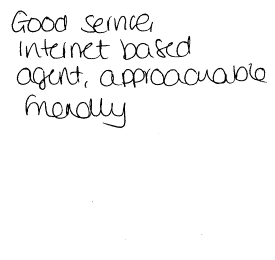 Good service,
internet based
agent, approachable
friendly